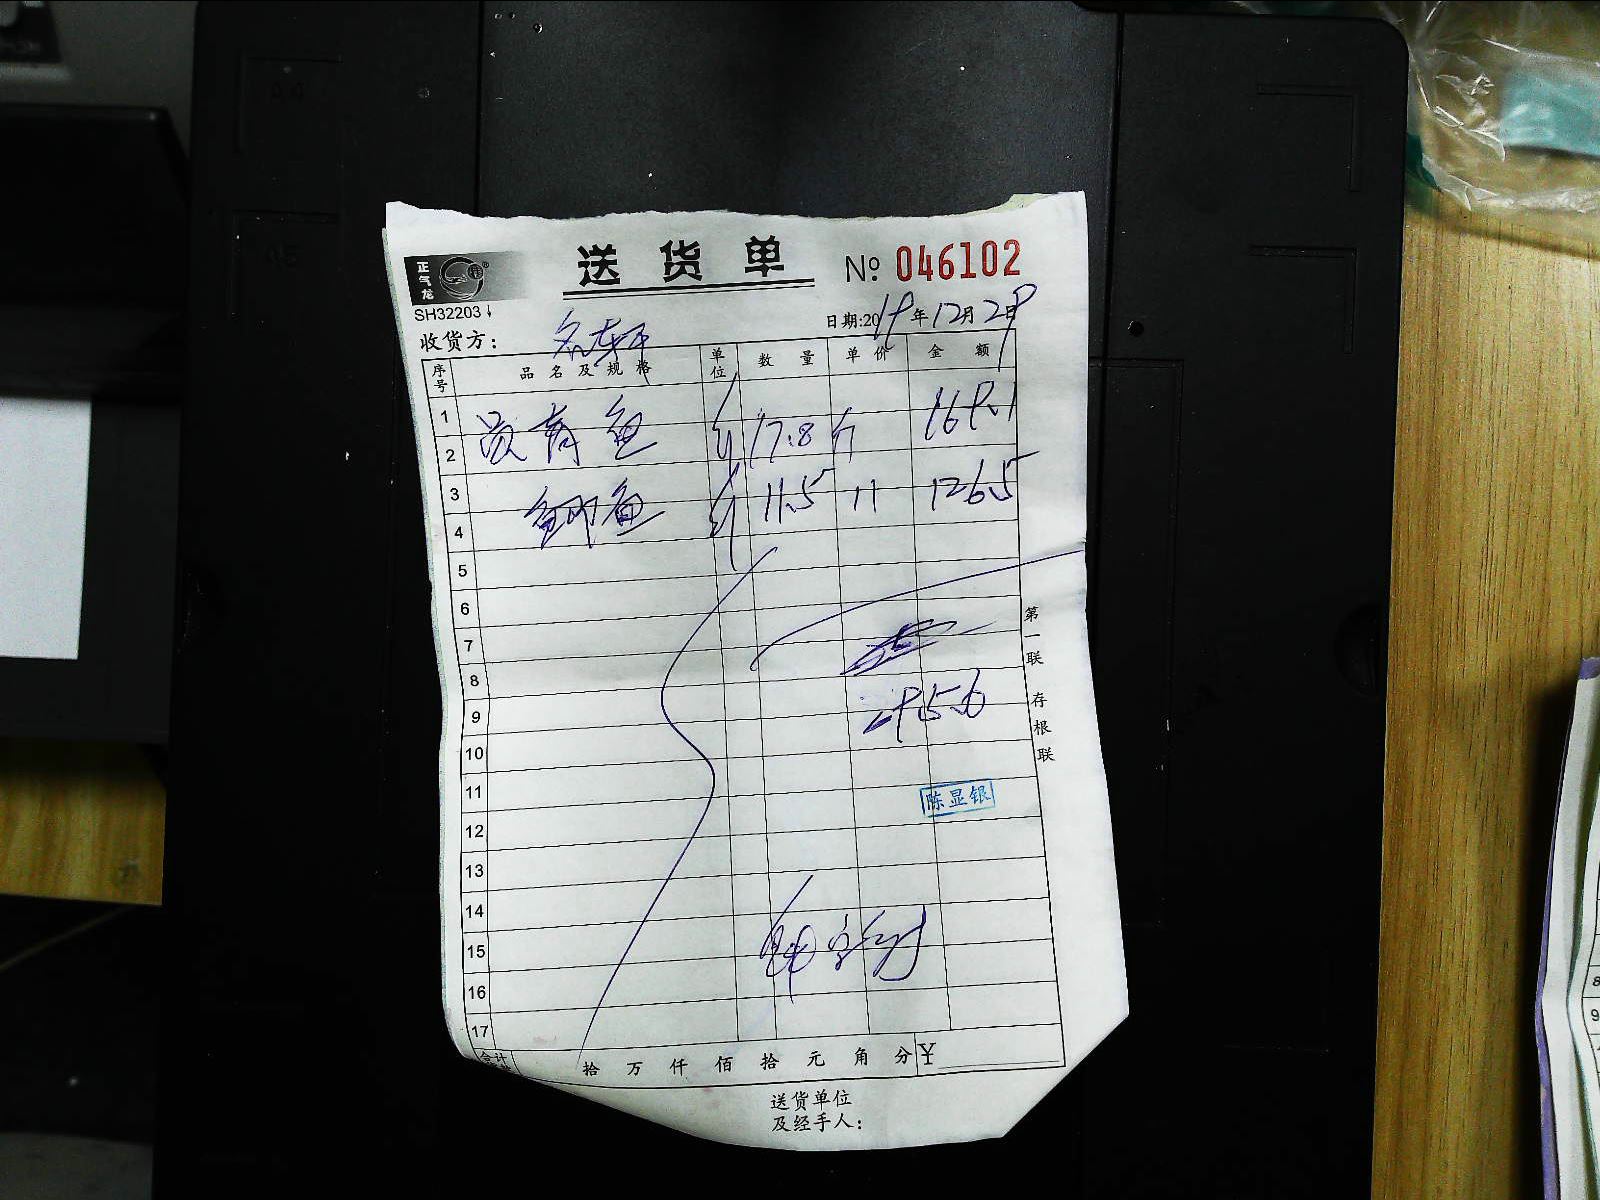 正气龙
送货单 № 046102
SH32203
日期:2019年12月29日
收货方: 名轩
序号 品名及规格 单位 数量 单价 金额
1
2 汲有鱼 斤 17.8 169.1
3
4 鲫鱼 斤 11.5 11 126.5
5
6
7
8
9 295.6
10
11 陈显银
12
13
14
15
16
17
合计 拾 万 仟 佰 拾 元 角 分 ¥
送货单位
及经手人:
第一联 存根联